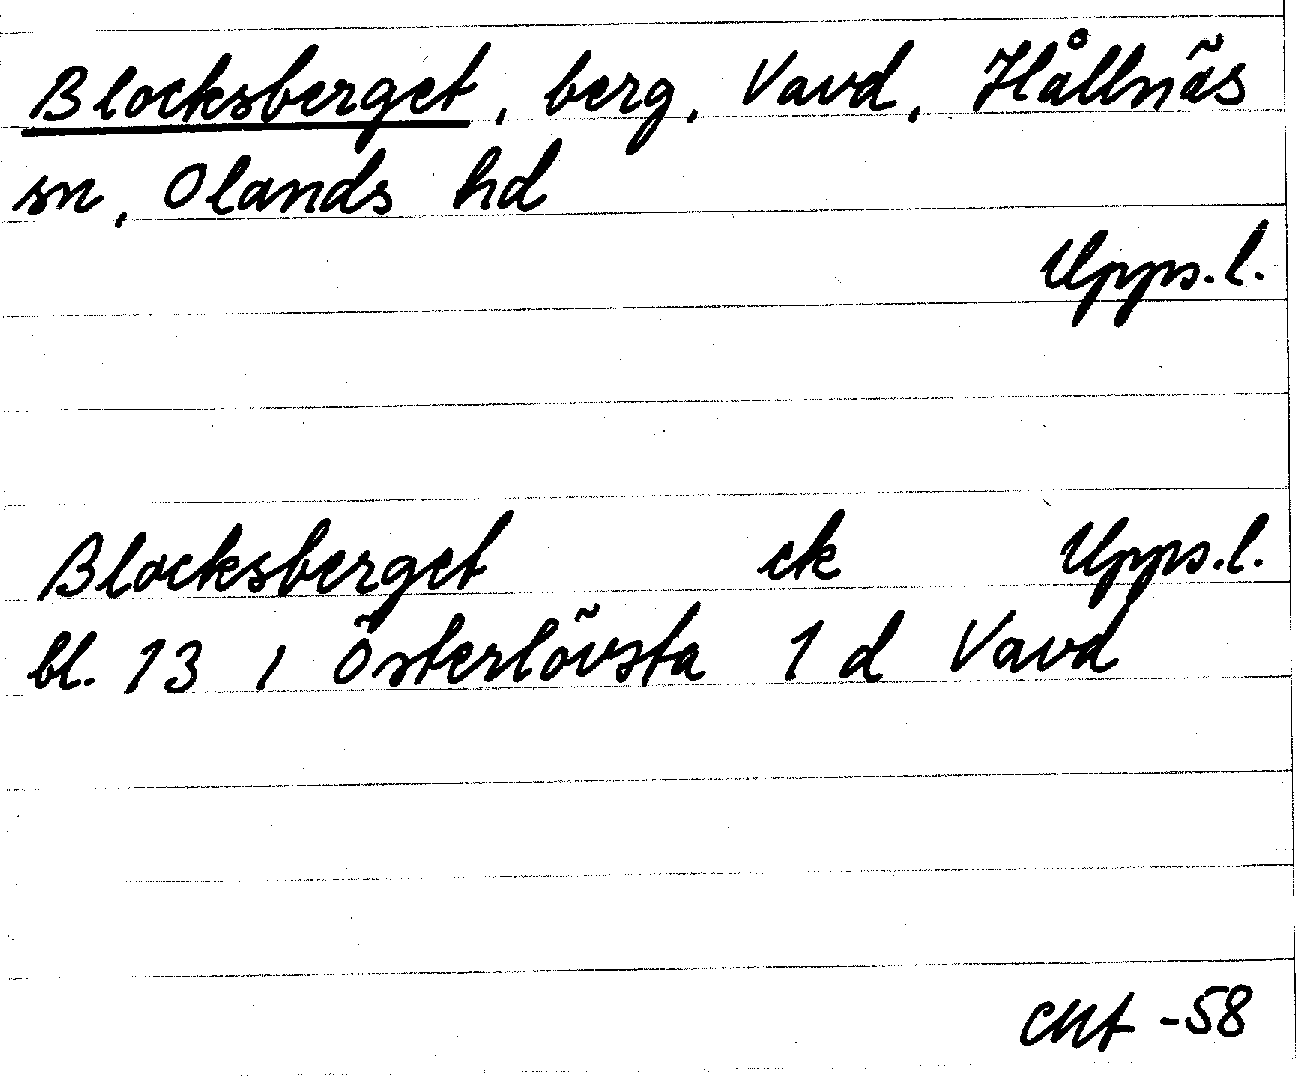 Blocksberget, berg, Vavd, Hållnäs
sn, Olands hd
Upps.l.
Blocksberget ek Upps.l.
bl. 13 i Österlövsta 1 d Vavd
-58